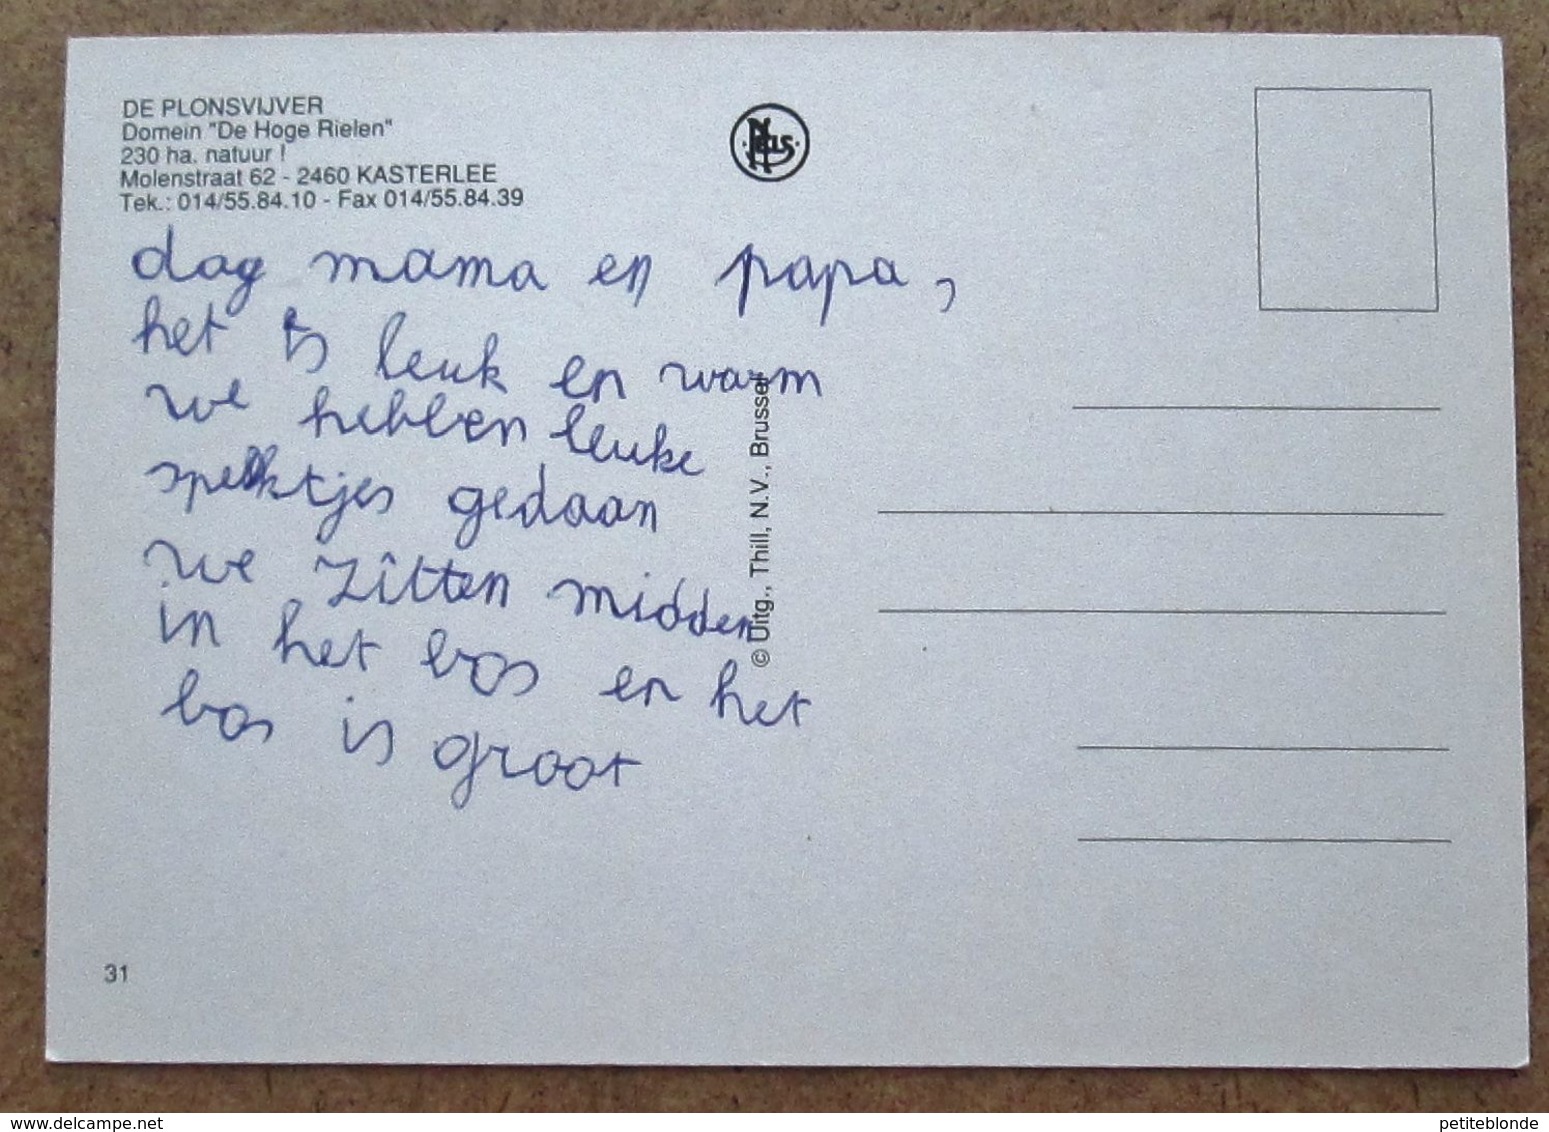 DE PLONSVIJVER
Domein "De Hoge Rielen"
230 ha. natuur !
Molenstraat 62 - 2460 KASTERLEE
Tek.: 014/55.84.10 - Fax 014/55.84.39
Nels
dag mama en papa,
het is leuk en warm
we hebben leuke
spelktjes gedaan
we zitten midden
in het bos en het
bos is groot
© Uitg., Thill, N.V., Brussel
31
delcampe.net
petiteblonde